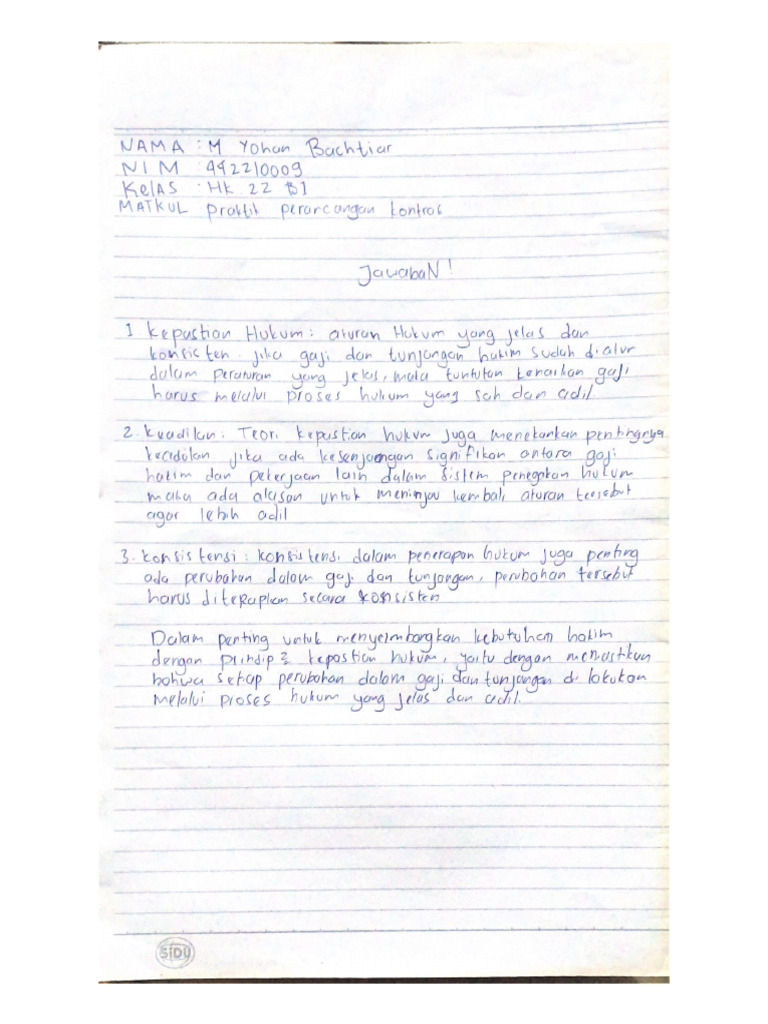 NAMA : M Yohan Bachtiar
NIM : 442210009
KELAS : HK 22 B1
MATKUL praktik perarcangan kontrak
JawabaN!
1 Kepastian Hukum : aturan Hukum yang jelas dan
konsisten. jika gaji dan tunjangan hakim sudah diatur
dalam peraturan yang jelas, maka tuntutan kenaikan gaji
harus melalui proses hukum yang sah dan adil
2. Keadilan : Teori kepastian hukum juga menekankan pentingnya
keadilan jika ada kesenjangan signifikan antara gaji
hakim dan pekerjaan lain dalam sistem penegakan hukum
maka ada alasan untuk meninjau kembali aturan tersebut
agar lebih adil
3. konsistensi : konsistensi dalam penerapan hukum juga penting
ada perubahan dalam gaji dan tunjangan, perubahan tersebut
harus diterapkan secara konsisten
Dalam penting untuk menyeimbangkan kebutuhan hakim
dengan prindip2 kepastian hukum, yaitu dengan memastikan
bahwa setiap perubahan dalam gaji dan tunjangan di lakukan
melalui proses hukum yang jelas dan adil.
SIDU